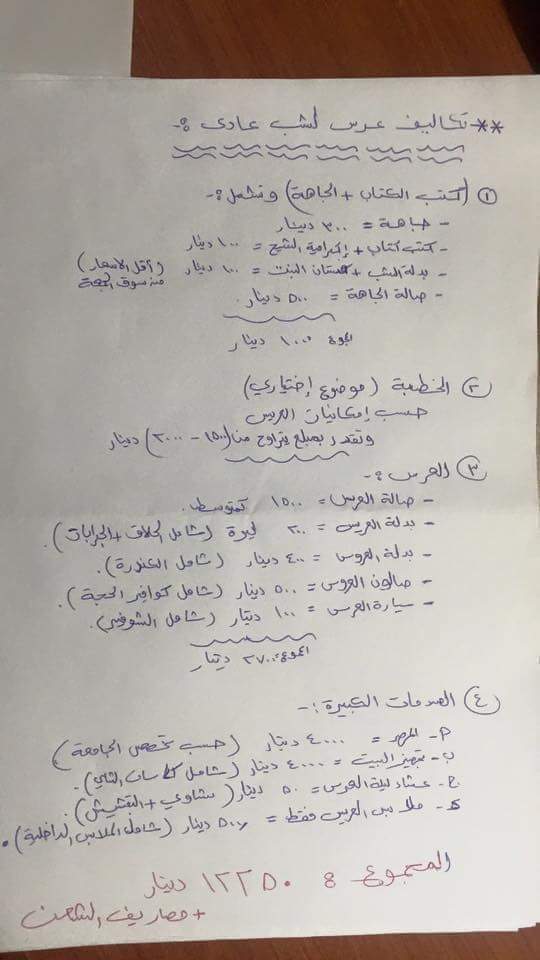 ** تكاليف عرس لشب عادي :-
① (كتب الكتاب + الجاهة) وتشمل :-
- جاهة = ٣٠٠ دينار
- كتب كتاب + إكرامية الشيخ = ١٠٠ دينار
- بدلة الشب + فستان البنت = ١٠٠ دينار (وأقل الأسعار من سوق الجمعة)
- صالة الجاهة = ٥٠٠ دينار.
المجموع ١٠٠٠ دينار
② الخطبة (موضوع إختياري)
حسب إمكانيات العريس
وتقدر بمبلغ يتراوح من (١٥٠٠ - ٢٠٠٠) دينار
③ العرس :-
- صالة العرس = ١٥٠٠ كمتوسط.
- بدلة العريس = ٢٠٠ ليرة (شامل الحلاق + الجرابات).
- بدلة العروس = ٤٠٠ دينار (شامل الكندرة).
- صالون العروس = ٥٠٠ دينار (شامل كوافير الحجة).
- سيارة العرس = ١٠٠ دينار (شامل الشوفير).
المجموع: ٢٧٠٠ دينار
④ الصدمات الكبيرة :-
أ- المهر = ٤٠٠٠ دينار (حسب تخصص الجامعة)
ب- تجهيز البيت = ٤٠٠٠ دينار (شامل كاسات الشاي).
ج- عشاء ليلة العرس = ٥٠ دينار (مشاوي + التقشيش).
د- ملابس العريس فقط = ٥٠٠ دينار (شامل الملابس الداخلية).
المجموع : ١٢٢٥٠ دينار
+ مصاريف الشحن